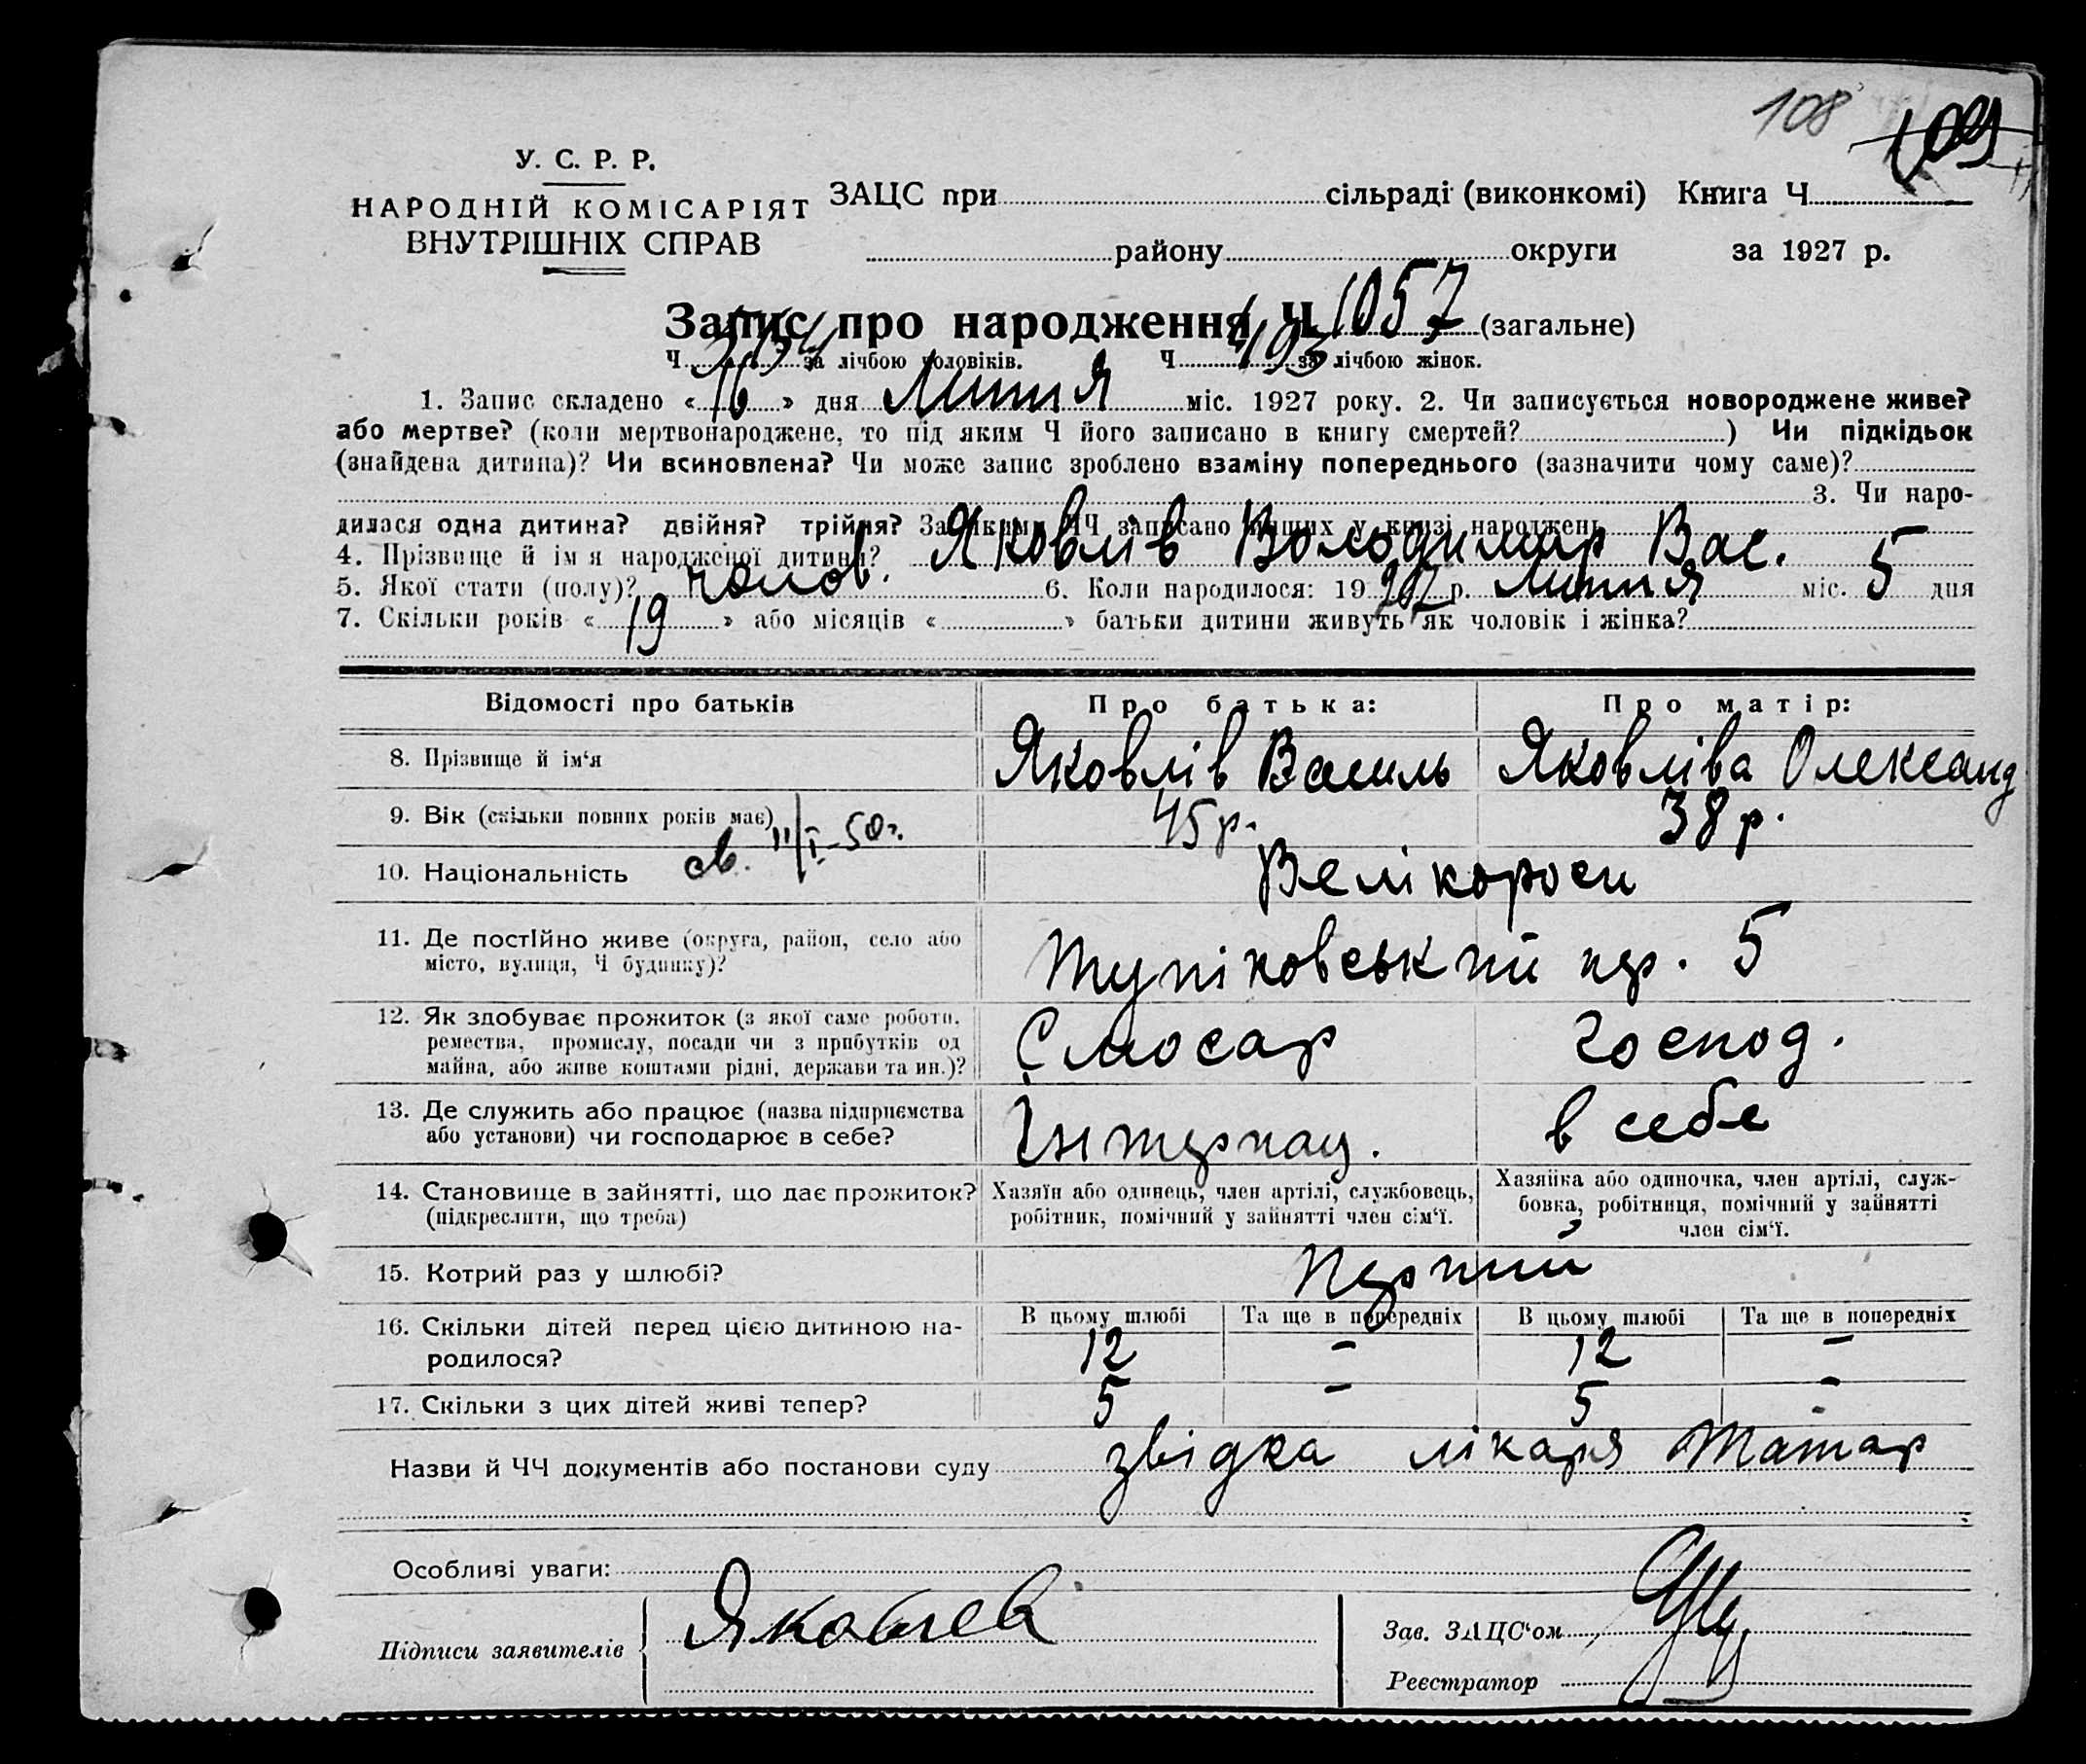 108 109
У. С. Р. Р.
НАРОДНІЙ КОМІСАРІЯТ
ВНУТРІШНІХ СПРАВ
ЗАЦС при сільраді (виконкомі) Книга Ч
району округи за 1927 р.
Запис про народження Ч 1057 (загальне)
Ч за лічбою чоловіків. Ч 493 за лічбою жінок.
1. Запис складено « 16 » дня Липня міс. 1927 року. 2. Чи записується новороджене живе?
або мертве? (коли мертвонароджене, то під яким Ч його записано в книгу смертей? ) Чи підкідьок
(знайдена дитина)? Чи всиновлена? Чи може запис зроблено взаміну попереднього (зазначити чому саме)?
3. Чи наро-
дилася одна дитина? двійня? трійня? За якими ЧЧ записано инших у книзі народжень
4. Прізвище й ім я народженої дитини? Яковлів Володимир Вас.
5. Якої стати (полу)? чолов. 6. Коли народилося: 19 27 р. Липня міс. 5 дня
7. Скільки років « 19 » або місяців « » батьки дитини живуть як чоловік і жінка?
Відомості про батьків Про батька: Про матір:
8. Прізвище й ім‘я Яковлів Василь Яковліва Олександ
9. Вік (скільки повних років має) 45 р. 38 р.
св. 11/I-50 г.
10. Національність Велікороси
11. Де постійно живе (округа, район, село або
місто, вулиця, Ч будинку)? Тупіковський пер. 5
12. Як здобуває прожиток (з якої саме роботи,
ремества, промислу, посади чи з прибутків од
майна, або живе коштами рідні, держави та ин.)? Слюсар господ.
13. Де служить або працює (назва підприємства
або установи) чи господарює в себе? Інтернац. в себе
14. Становище в зайнятті, що дає прожиток?
(підкреслити, що треба)
Хазяїн або одинець, член артілі, службовець,
робітник, помічний у зайнятті член сім‘ї.
Хазяйка або одиночка, член артілі, служ-
бовка, робітниця, помічний у зайнятті
член сім‘ї.
15. Котрий раз у шлюбі? Перший
В цьому шлюбі Та ще в попередніх В цьому шлюбі Та ще в попередніх
16. Скільки дітей перед цією дитиною на-
родилося? 12 – 12 –
17. Скільки з цих дітей живі тепер? 5 – 5 –
Назви й ЧЧ документів або постанови суду звідка лікаря Татар
Особливі уваги:
Підписи заявителів Яковлев
Зав. ЗАЦС‘ом
Реєстратор